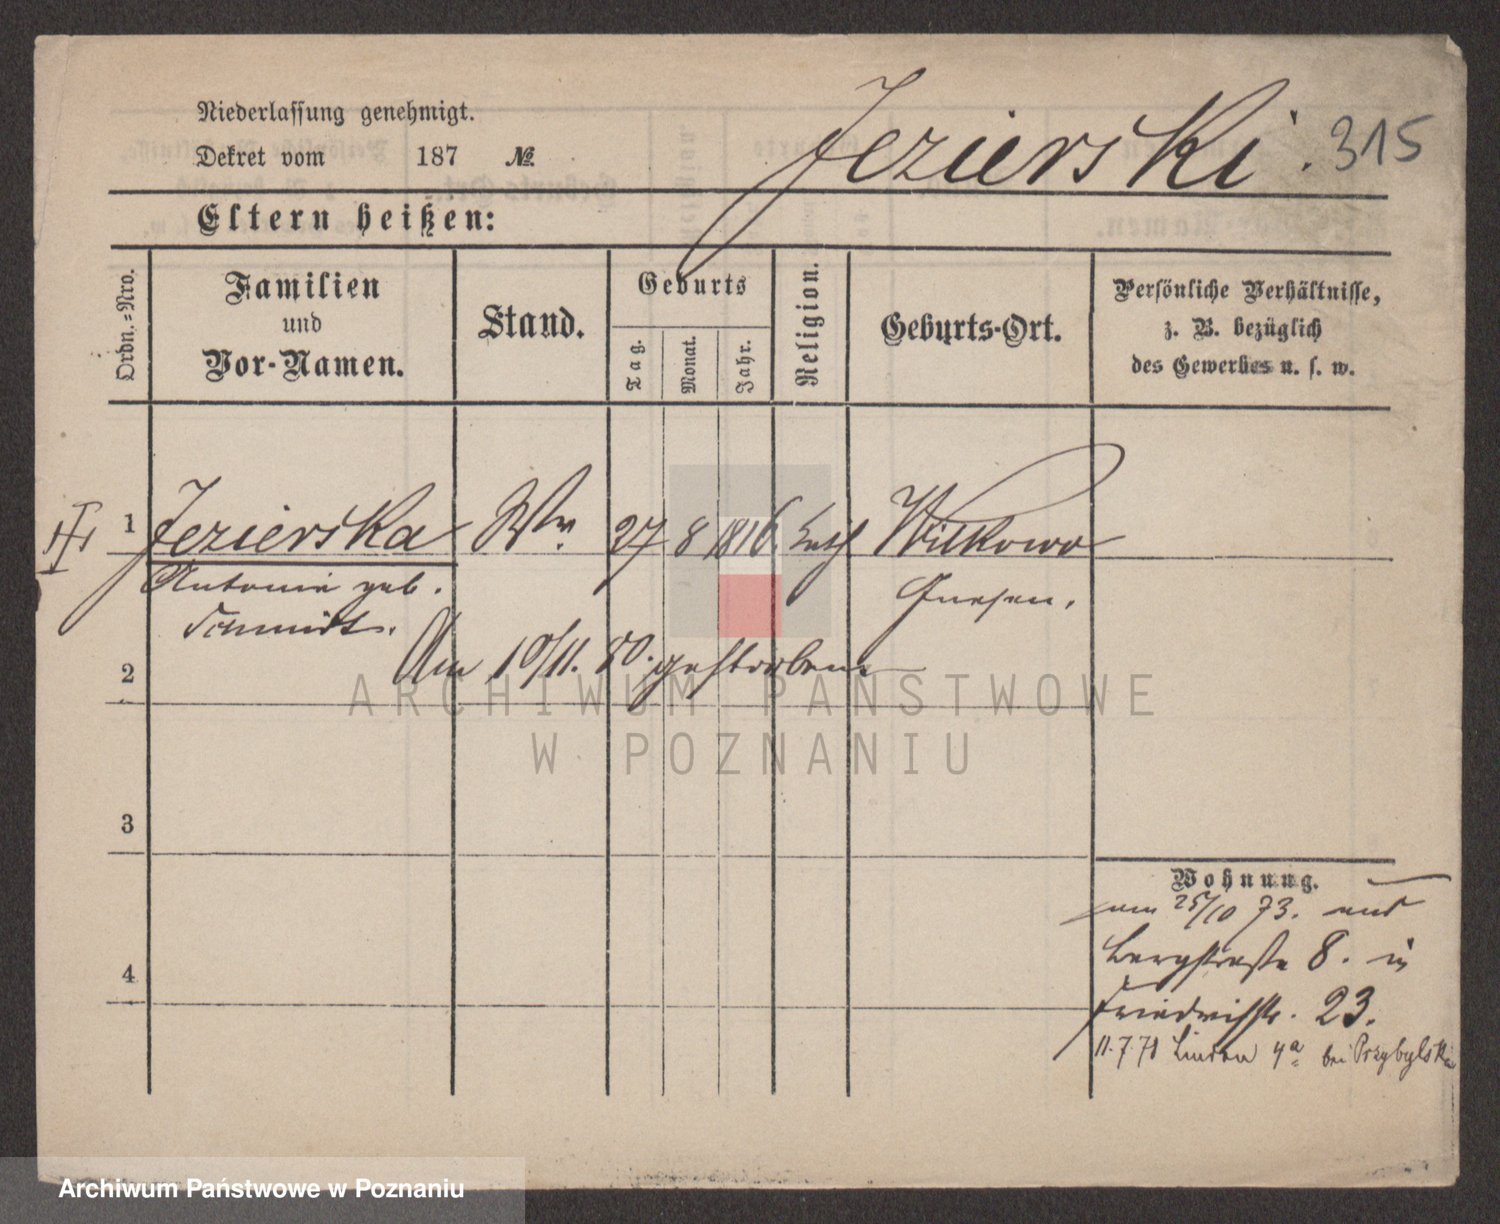 Jezierski. 315
Niederlassung genehmigt.
Dekret vom 187 №
Eltern heißen:
Ordn.-Nro.
Familien
und
Vor-Namen.
Stand.
Geburts
Tag.
Monat.
Jahr.
Religion.
Geburts-Ort.
Persönliche Verhältnisse,
z. B. bezüglich
des Gewerbes u. s. w.
1 Jezierska Ww. 27 8 1816. kath Witkowo
Antonie geb. Gnesen.
Schmidt.
Am 10/11. 80. gestorben.
2
3
4
Wohnung.
am 25/10 73. aus
Bergstraße 8. in
Friedrichstr. 23.
11.7.78 Linden 4a bei Przybylska
ARCHIWUM PAŃSTWOWE
W POZNANIU
Archiwum Państwowe w Poznaniu